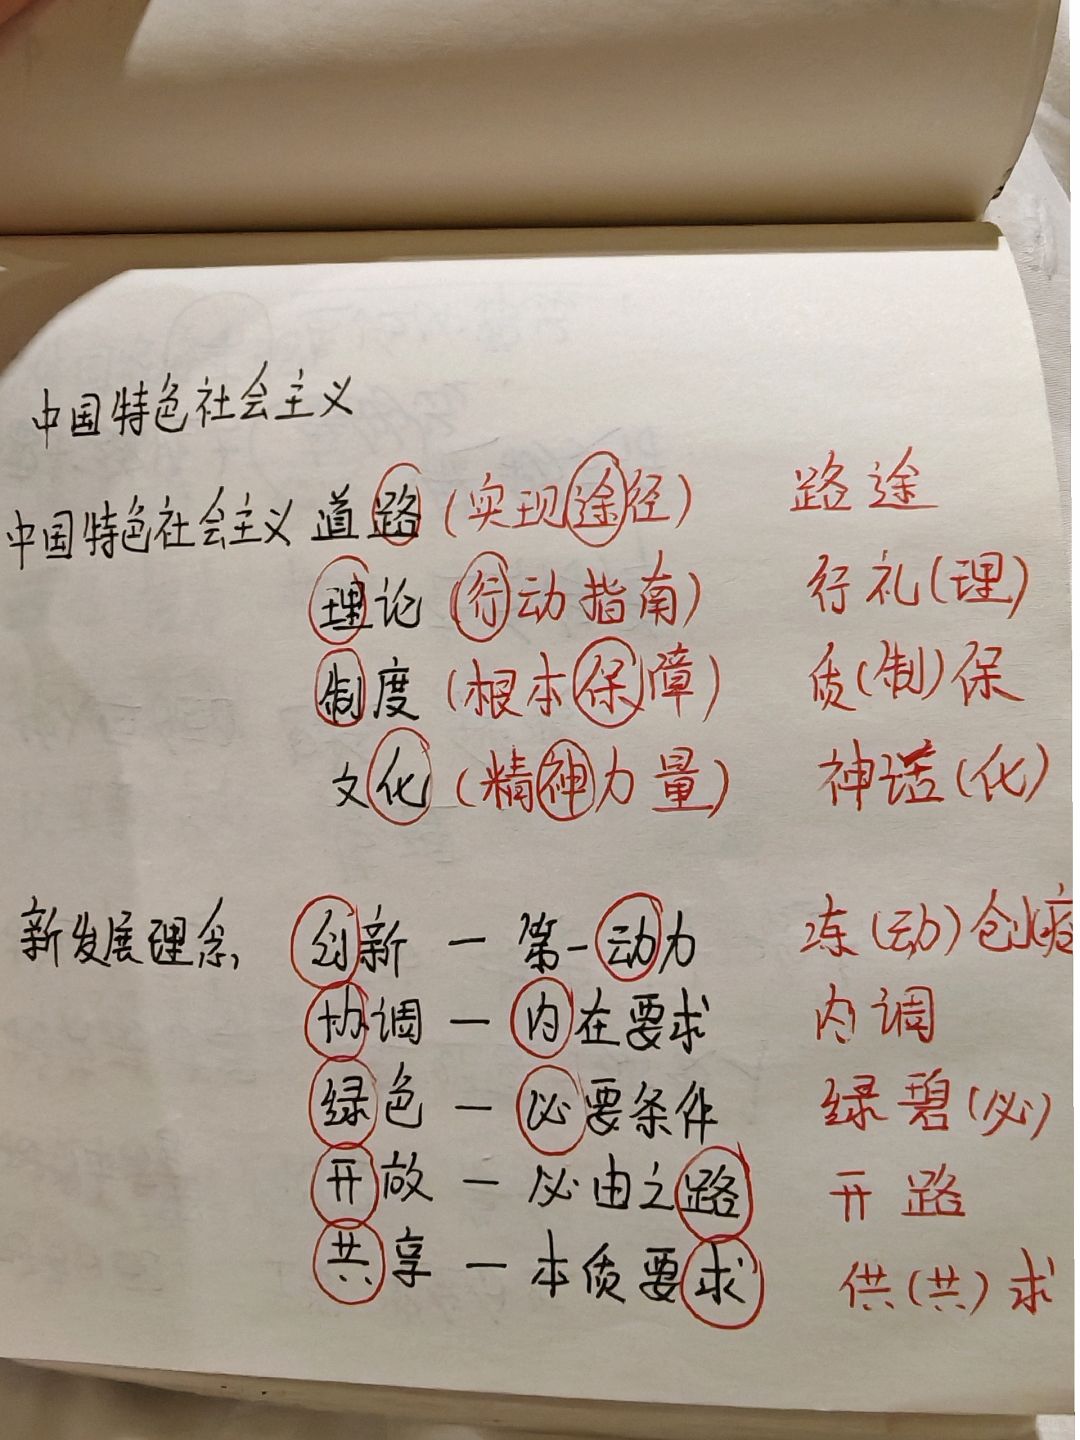 中国特色社会主义
中国特色社会主义道路(实现途径) 路途
理论(行动指南) 行礼(理)
制度(根本保障) 质(制)保
文化(精神力量) 神话(化)
新发展理念 创新 — 第一动力 冻(动)创疮
协调 — 内在要求 内调
绿色 — 必要条件 绿碧(必)
开放 — 必由之路 开路
共享 — 本质要求 供(共)求